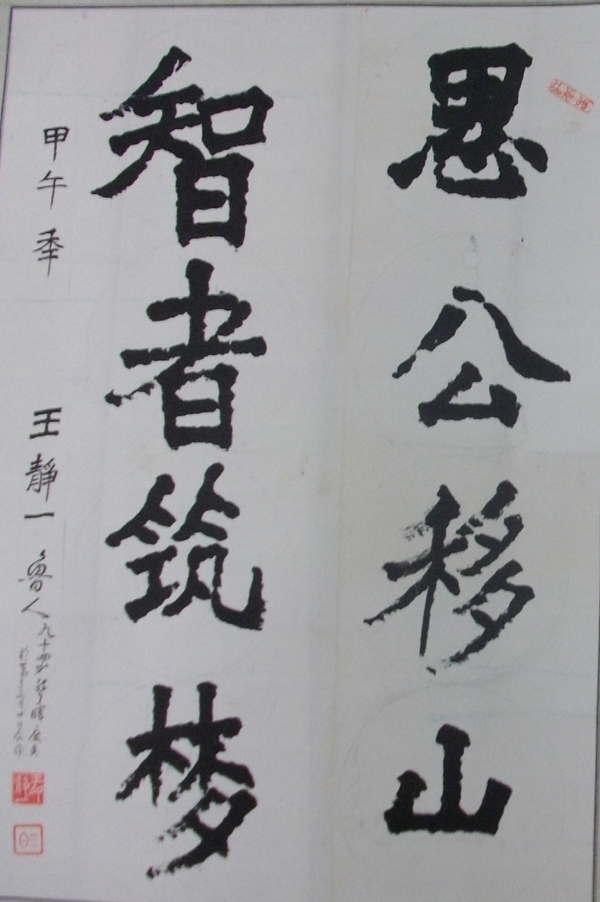 愚公移山
智者筑梦
甲午秊 王靜一 魯人
九十四